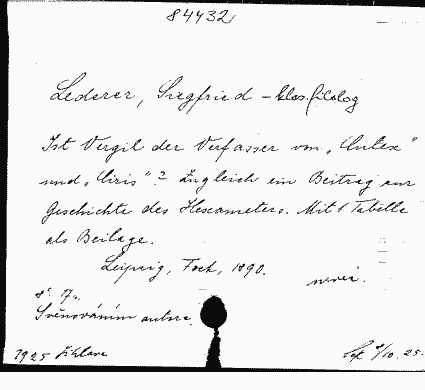 84432
Lederer, Siegfried – klas. filolog
Ist Vergil der Verfasser von „Culex"
und „Ciris"? Zugleich ein Beitrag zur
Geschichte des Hexameters. Mit 1 Tabelle
als Beilage.
Leipzig, Fock, 1890.
neváz.
8°. 17 s.
S věnováním autora.
1925 Jihlava
10. 25.